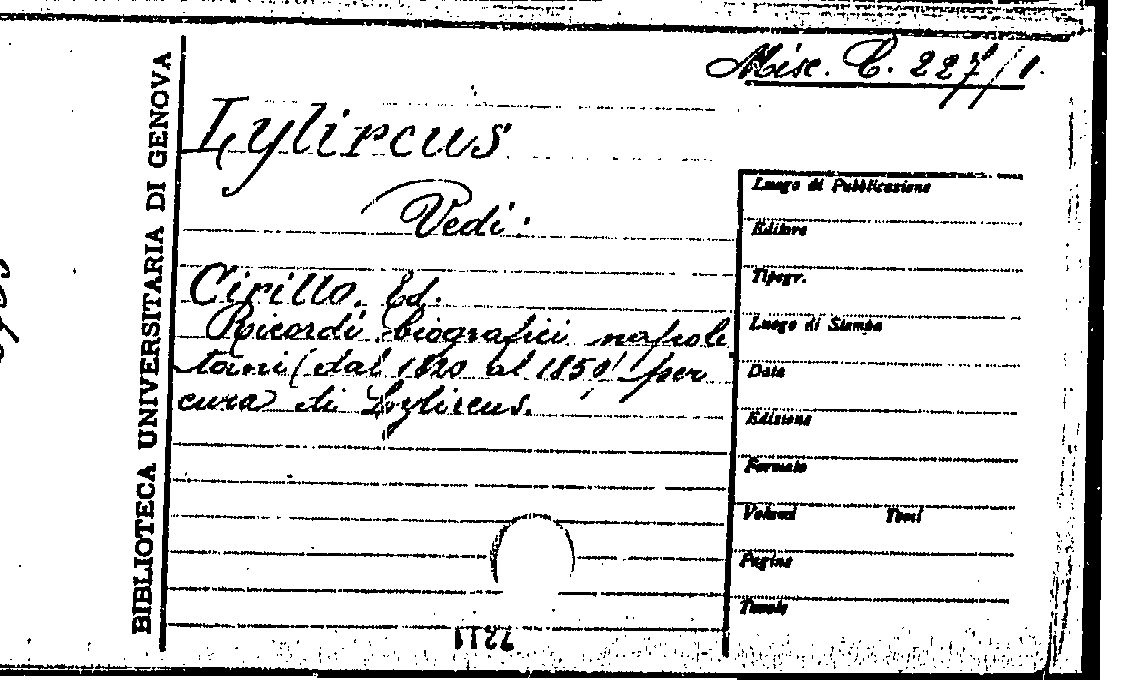 Misc. C. 227/1.
BIBLIOTECA UNIVERSITARIA DI GENOVA
Lylircus
Vedi:
Cirillo. Ed.
Ricordi biografici napole
tani (dal 1820 al 1850) per
cura di Lylircus.
Luogo di Pubblicazione
Editore
Tipogr.
Luogo di Stampa
Data
Edizione
Formato
Volumi Tomi
Pagine
Tavole
7211